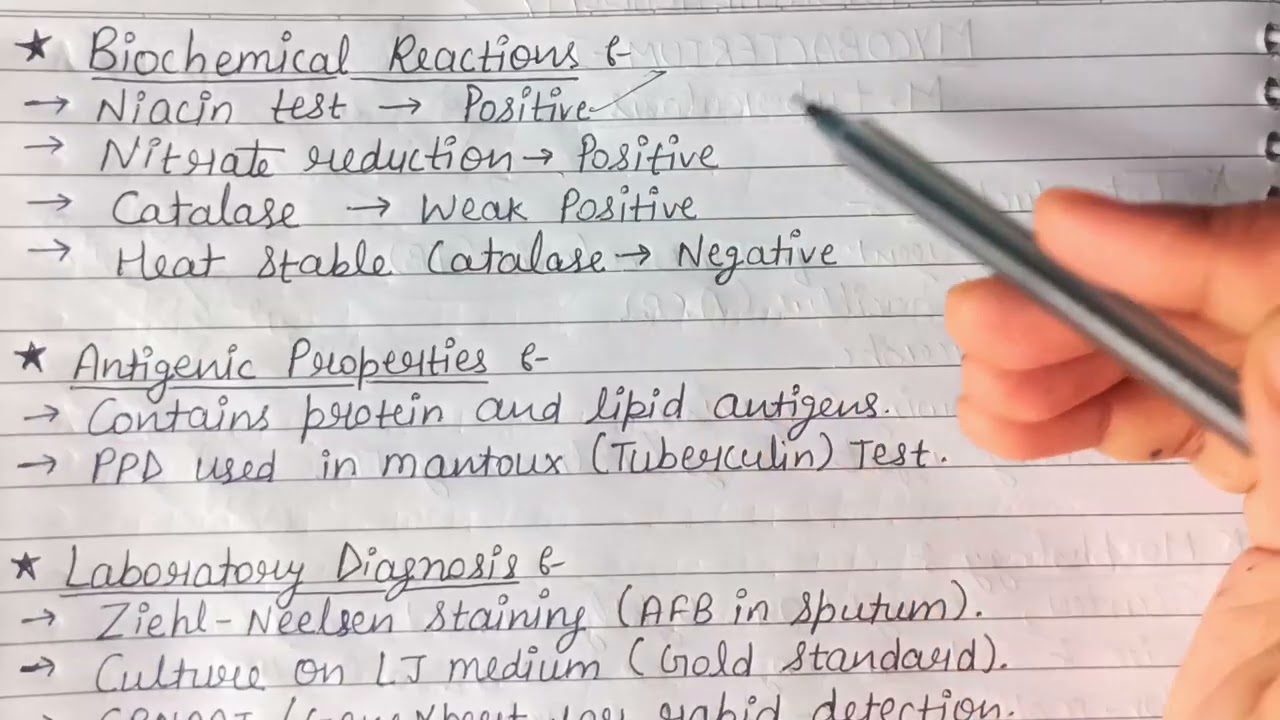 ★ Biochemical Reactions :-
→ Niacin test → Positive
→ Nitrate reduction → Positive
→ Catalase → Weak Positive
→ Heat stable Catalase → Negative
★ Antigenic Properties :-
→ Contains protein and lipid antigens.
→ PPD used in mantoux (Tuberculin) Test.
★ Laboratory Diagnosis :-
→ Ziehl-Neelsen staining (AFB in sputum).
→ Culture on LJ medium (Gold standard).
→ rapid detection.